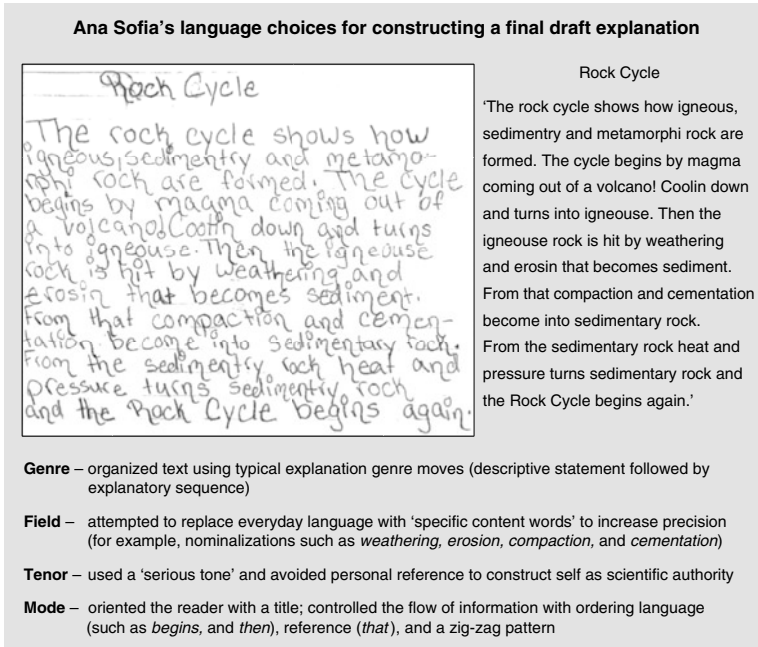 Ana Sofia's language choices for constructing a final draft explanation
Rock Cycle
The rock cycle shows how
igneous, sedimentry and metamo-
rphi rock are formed. The cycle
begins by magma coming out of
a volcano! Coolin down and turns
into igneouse. Then the igneouse
rock is hit by weathering and
erosin that becomes sediment.
From that compaction and cemen-
tation become into sedimentary rock.
From the sedimentry rock heat and
pressure turns sedimentry rock
and the Rock Cycle begins again.
Rock Cycle
'The rock cycle shows how igneous,
sedimentry and metamorphi rock are
formed. The cycle begins by magma
coming out of a volcano! Coolin down
and turns into igneouse. Then the
igneouse rock is hit by weathering
and erosin that becomes sediment.
From that compaction and cementation
become into sedimentary rock.
From the sedimentary rock heat and
pressure turns sedimentary rock and
the Rock Cycle begins again.'
Genre – organized text using typical explanation genre moves (descriptive statement followed by
explanatory sequence)
Field – attempted to replace everyday language with 'specific content words' to increase precision
(for example, nominalizations such as weathering, erosion, compaction, and cementation)
Tenor – used a 'serious tone' and avoided personal reference to construct self as scientific authority
Mode – oriented the reader with a title; controlled the flow of information with ordering language
(such as begins, and then), reference (that), and a zig-zag pattern